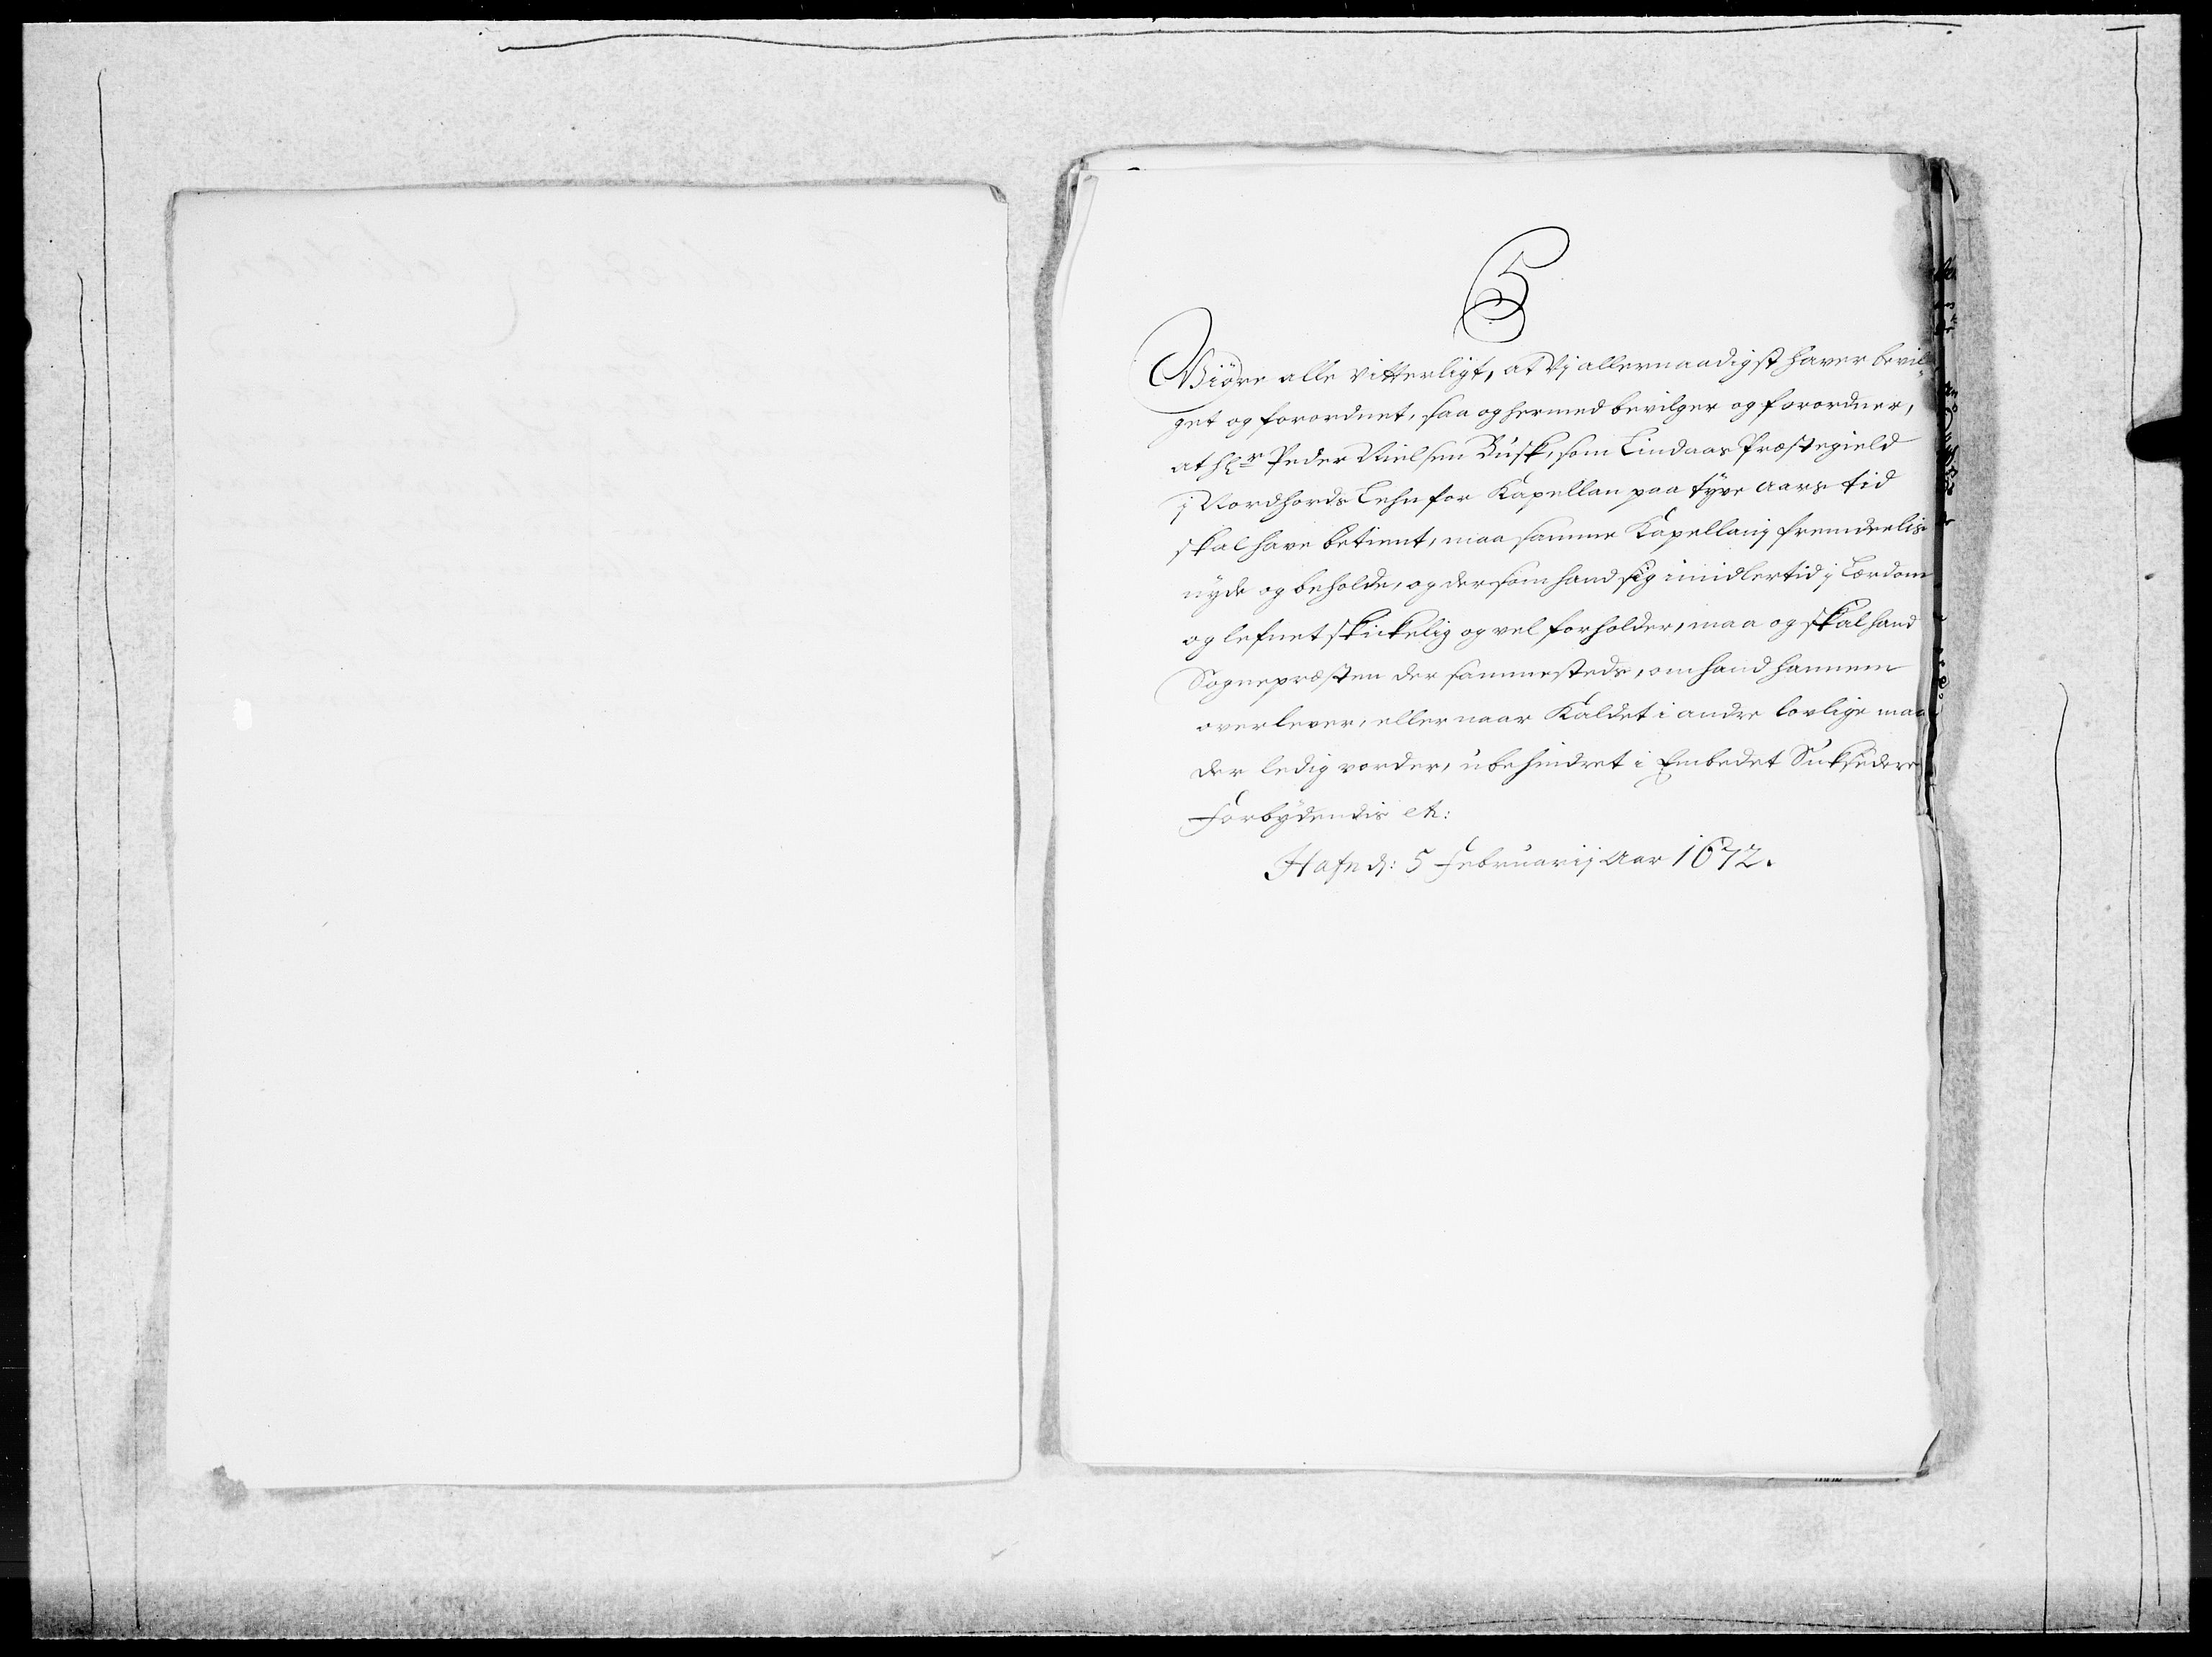 C5
Giöre alle vitterligt, at Vj allernaadigst haver bevil-
get og forordnet, saa og hermed bevilger og forordner,
at Hr Peder Nielsen Busk, som Lindaas Præstegield
j Nordhords Lehn for Kapellan paa tyve aars tid
skal have betient, maa samme Kapellanj fremdeelis
nyde og beholde, og dersom hand sig imidlertid j Lærdom
og lefnet skickelig og vel forholder, maa og skal hand
Sognepræsten der sammesteds, om hand hannem
overlever, eller naar Kaldet i andre lovlige maa
der ledig vorder, ubehindret i Embedet Suksedere
Forbydendis etc:
Hafn d: 5 Februarij Aar 1672.